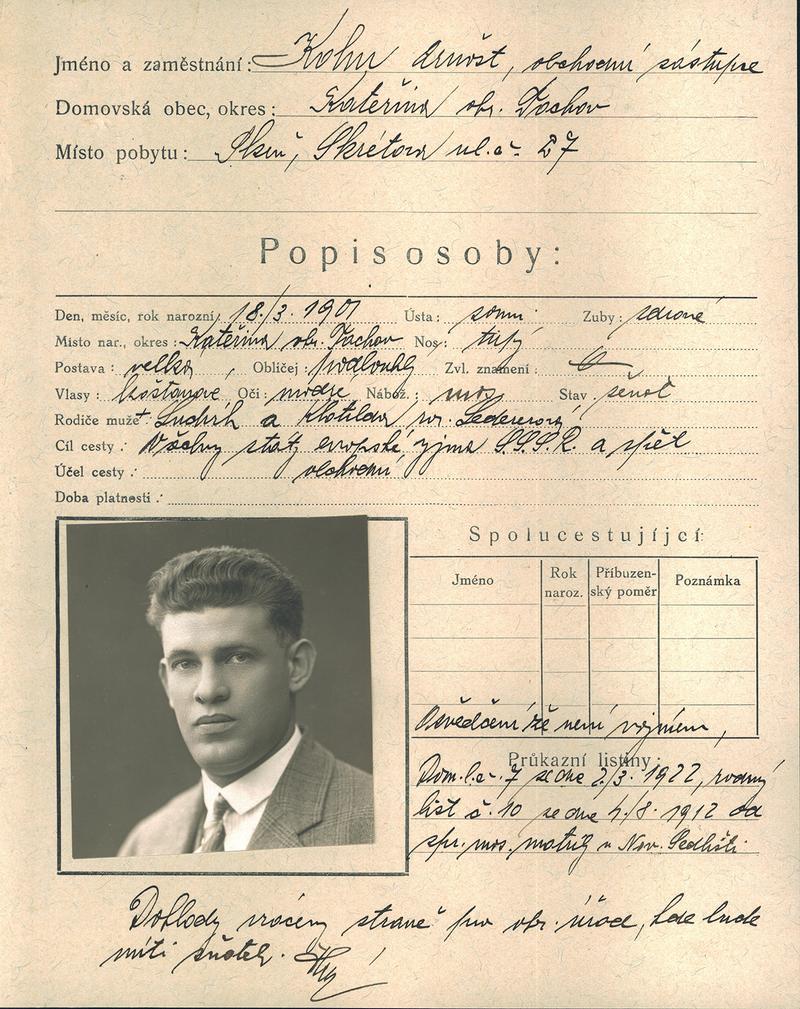 Jméno a zaměstnání: Kohn Arnošt, obchodní zástupce
Domovská obec, okres: Kateřina okr. Tachov
Místo pobytu: Plzeň, Skrétova ul. č. 27
Popis osoby:
Den, měsíc, rok narození: 18./3. 1901 Ústa: Zuby: zdravé
Místo nar., okres: Kateřina okr. Tachov Nos: tupý
Postava: velká, Obličej: podlouhlý Zvl. znamení:
Vlasy: kaštanové Oči: modré Nábož.: mos. Stav ženat
Rodiče muže + Ludvík a Klotilda roz. Ledererová
Cíl cesty: Všechny státy evropské vyjma S.S.S.R. a zpět
Účel cesty: obchodní
Doba platnosti:
Spolucestující:
Jméno Rok naroz. Příbuzenský poměr Poznámka
Osvědčení že není vojínem,
Průkazní listiny:
Dom. l. č. 7 ze dne 2/3. 1922, rodný
list č. 10 ze dne 4/8. 1912 od
spr. mos. matrik v Nov. Sedlišti.
Doklady vráceny straně pro okr. úřad, kde bude
míti sňatek.